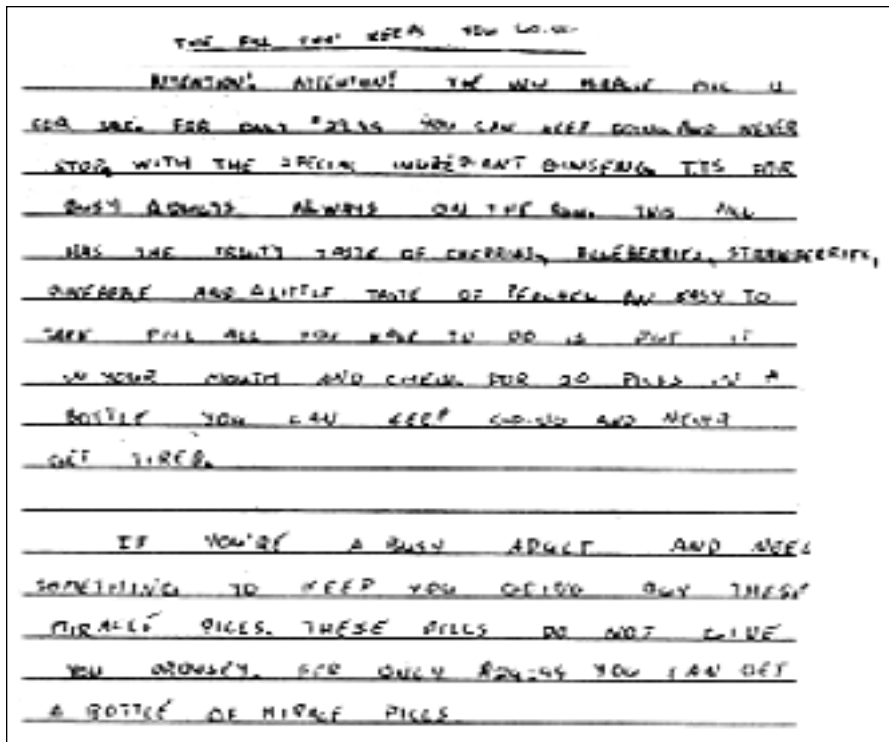 THE PILL THAT KEEPS YOU GOING
ATTENTION! ATTENTION! THE NEW MIRACLE PILL IS
FOR SALE. FOR ONLY $29.99 YOU CAN KEEP GOING AND NEVER
STOP, WITH THE SPECIAL INGREDIANT GINSENG. ITS FOR
BUSY ADULTS ALWAYS ON THE RUN. THIS PILL
HAS THE FRUITY TASTE OF CHERRIES, BLUEBERRIES, STRAWBERRIES,
PINEAPPLE AND A LITTLE TASTE OF PEACHES AN EASY TO
TAKE PILL ALL YOU HAVE TO DO IS PUT IT
IN YOUR MOUTH AND CHEW. FOR 30 PILLS IN A
BOTTLE YOU CAN KEEP GOING AND NEVER
GET TIRED.
IF YOU'RE A BUSY ADULT AND NEED
SOMETHING TO KEEP YOU GOING BUY THESE
MIRACLE PILLS. THESE PILLS DO NOT GIVE
YOU DROWSEY. FOR ONLY $29.99 YOU CAN GET
A BOTTLE OF PILLS